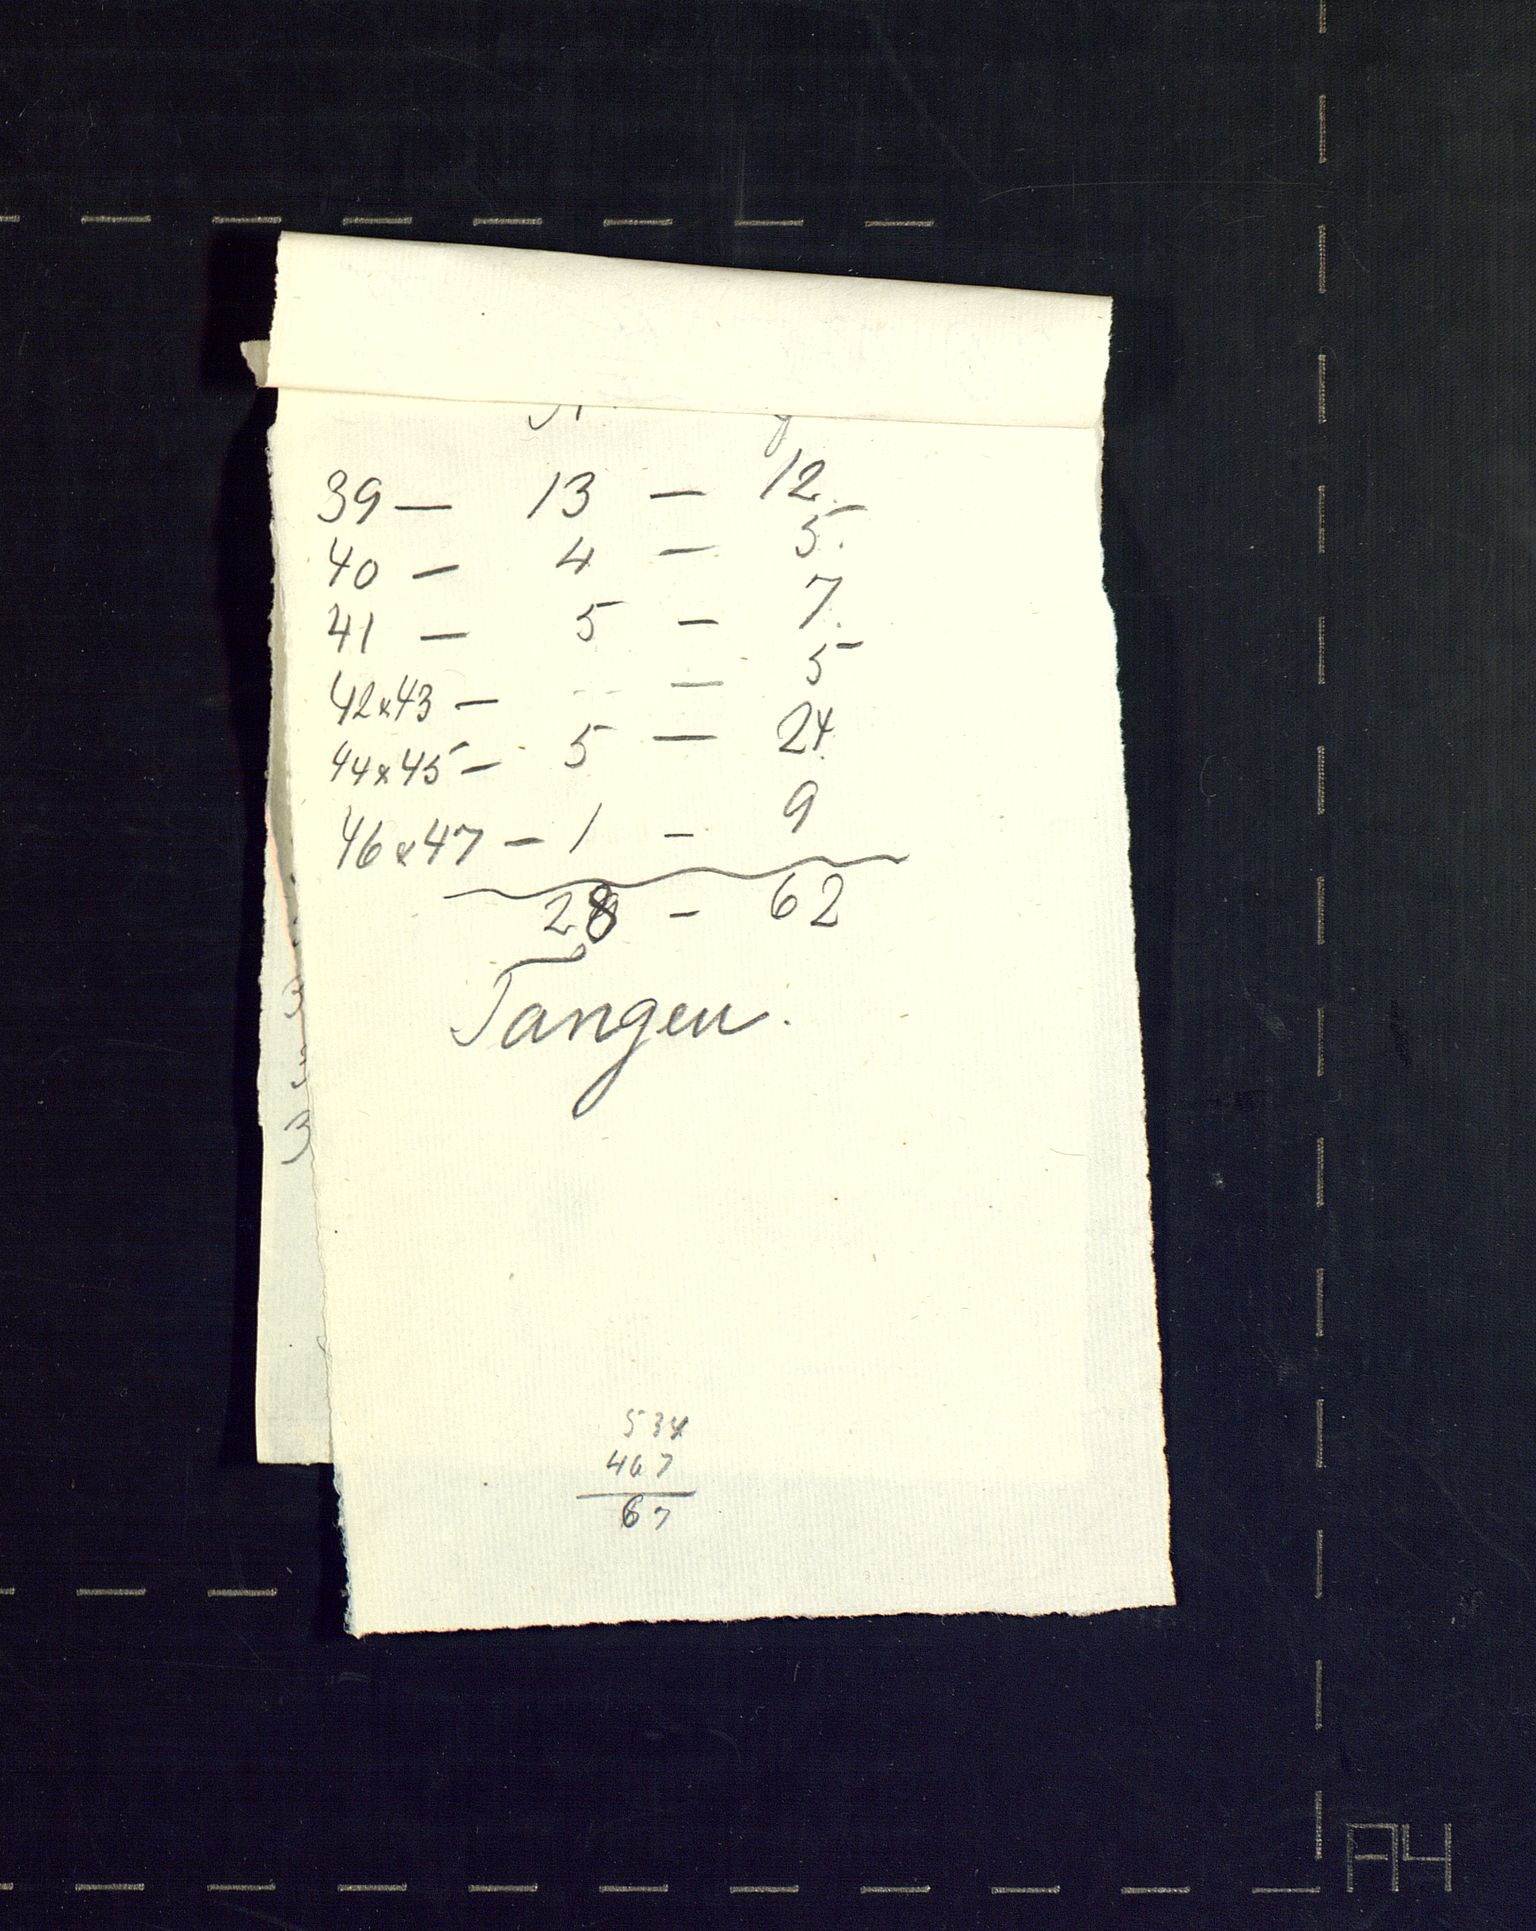 39 — 13 — 12.
40 — 4 — 5.
41 — 5 — 7.
42 x 43 — -- — 5
44 x 45 — 5 — 24.
46 x 47 — 1 — 9
28 — 62
Tangen.
534
467
67
A4